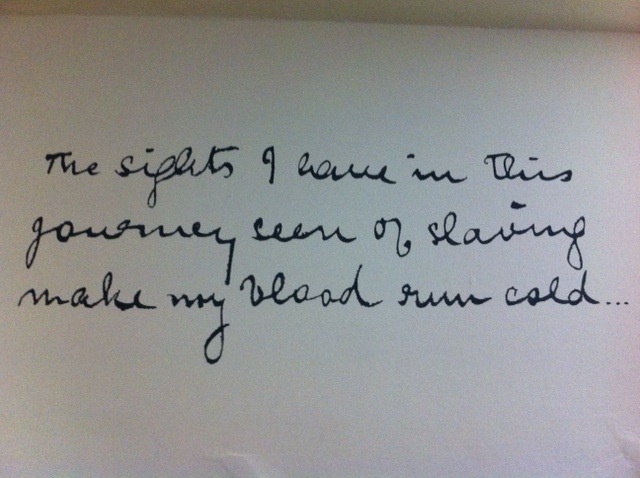 The sights I have in this
journey seen of slaving
make my blood run cold...